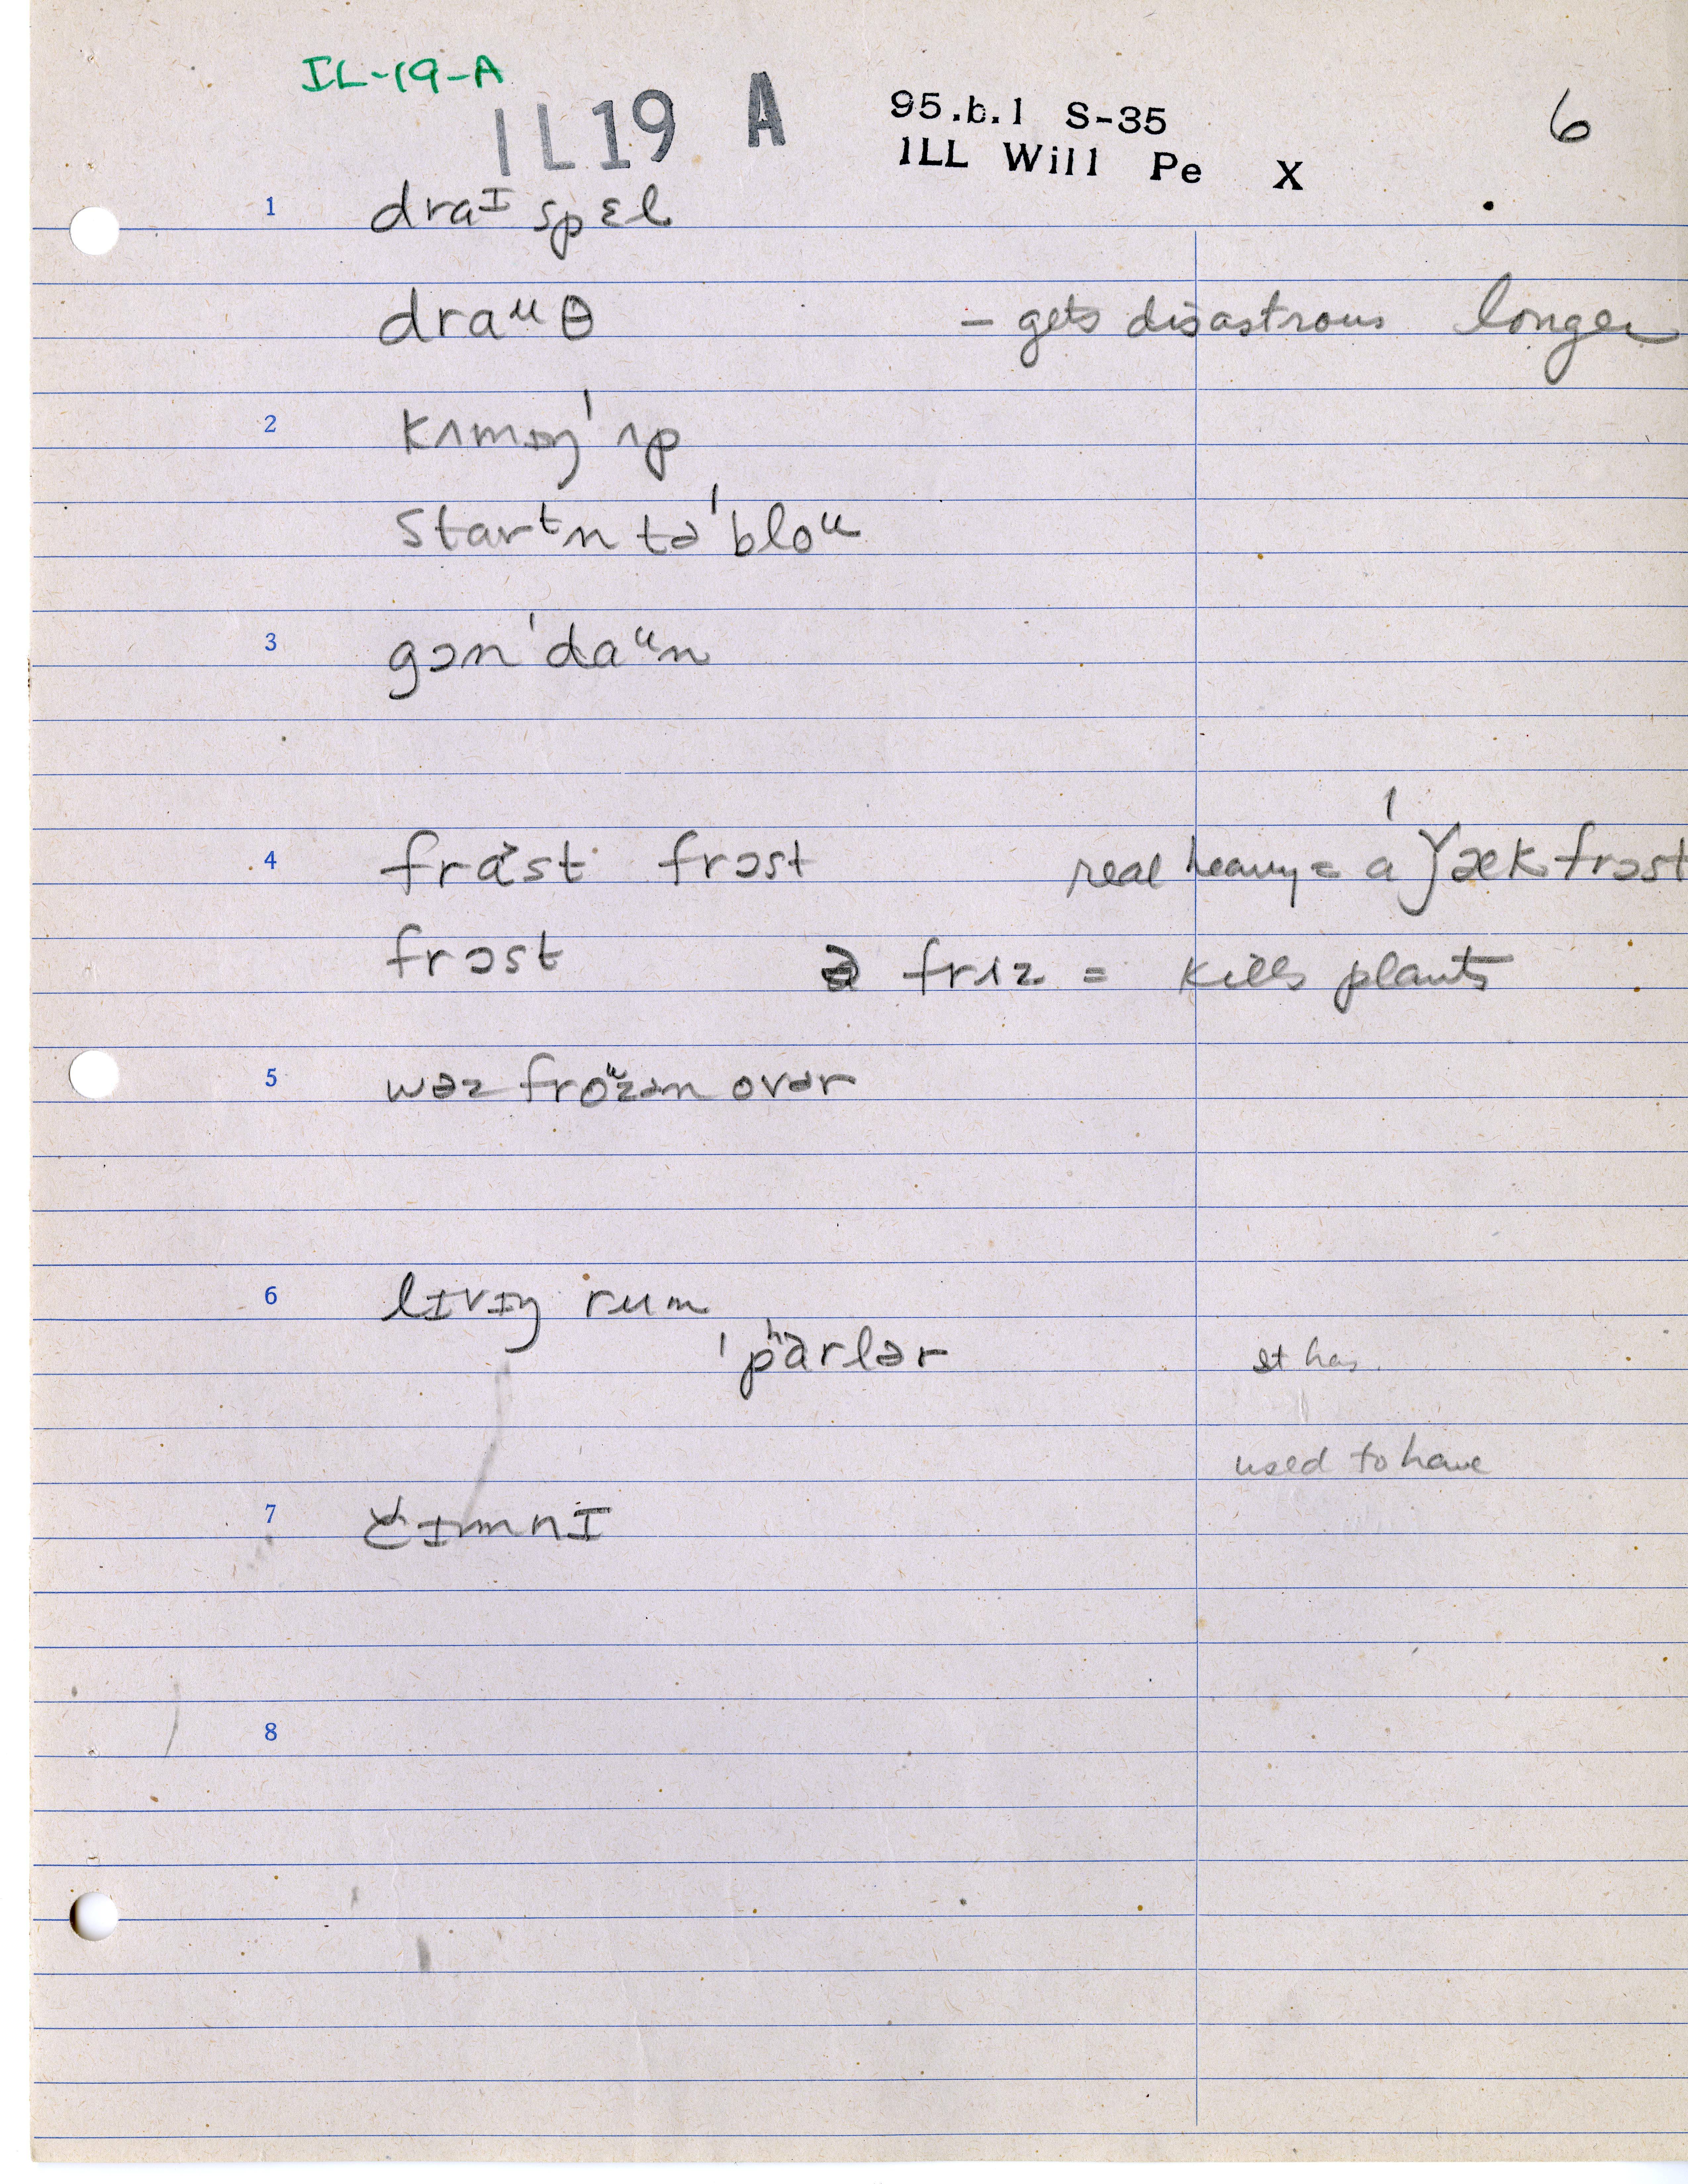 IL-19-A
IL19 A
95.b.1 S-35
ILL Will Pe X
6
1 draᴵ spɛl
draᵘθ - gets disastrous longer
2 kʌmɪŋ ˈʌp
starᵗn tə ˈbloᵘ
3 gɔn ˈdaᵘn
4 frɑst frɔst real heavy = a ˈǰæk frɔst
frɔst ə friz = kills plants
5 wəz froᵘzən ovər
6 lɪvɪŋ rum
ˈpʰɑrlər it has
used to have
7 čɪmnɪ
8